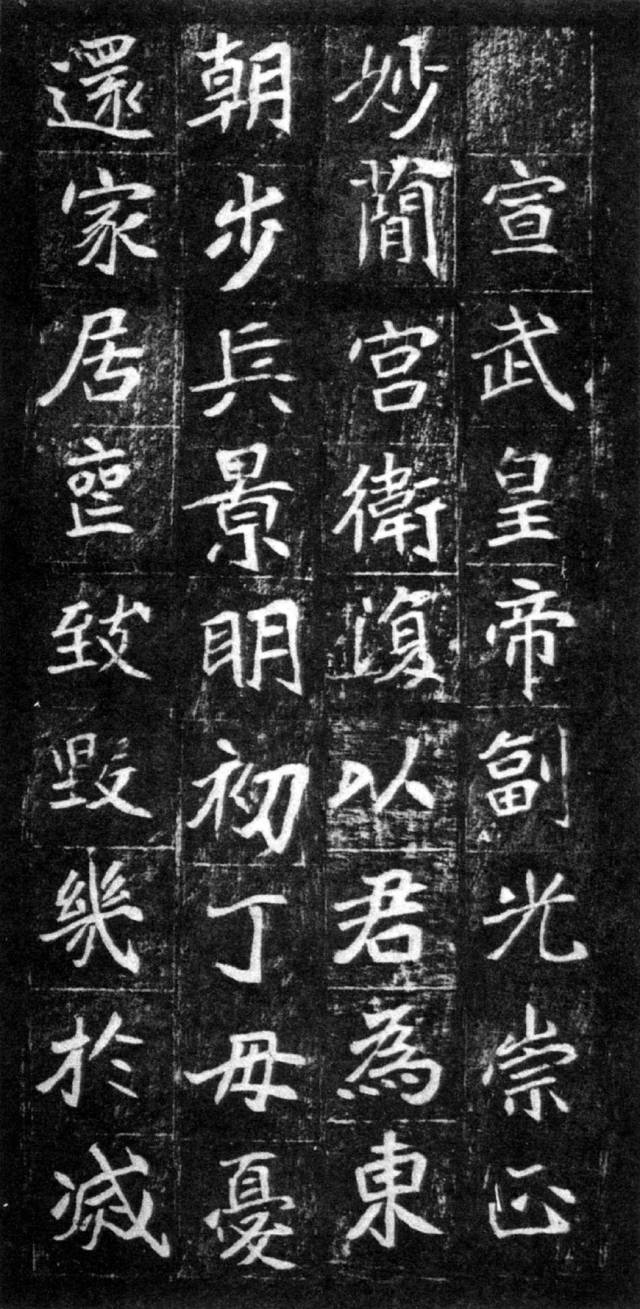 宣武皇帝副光崇正
妙蕳宫衛復以君為東
朝步兵景明初丁母憂
還家居喪致毀幾於滅